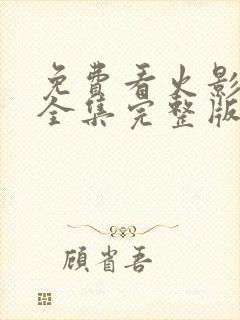 免费看火影
全集完整版
顾省吾